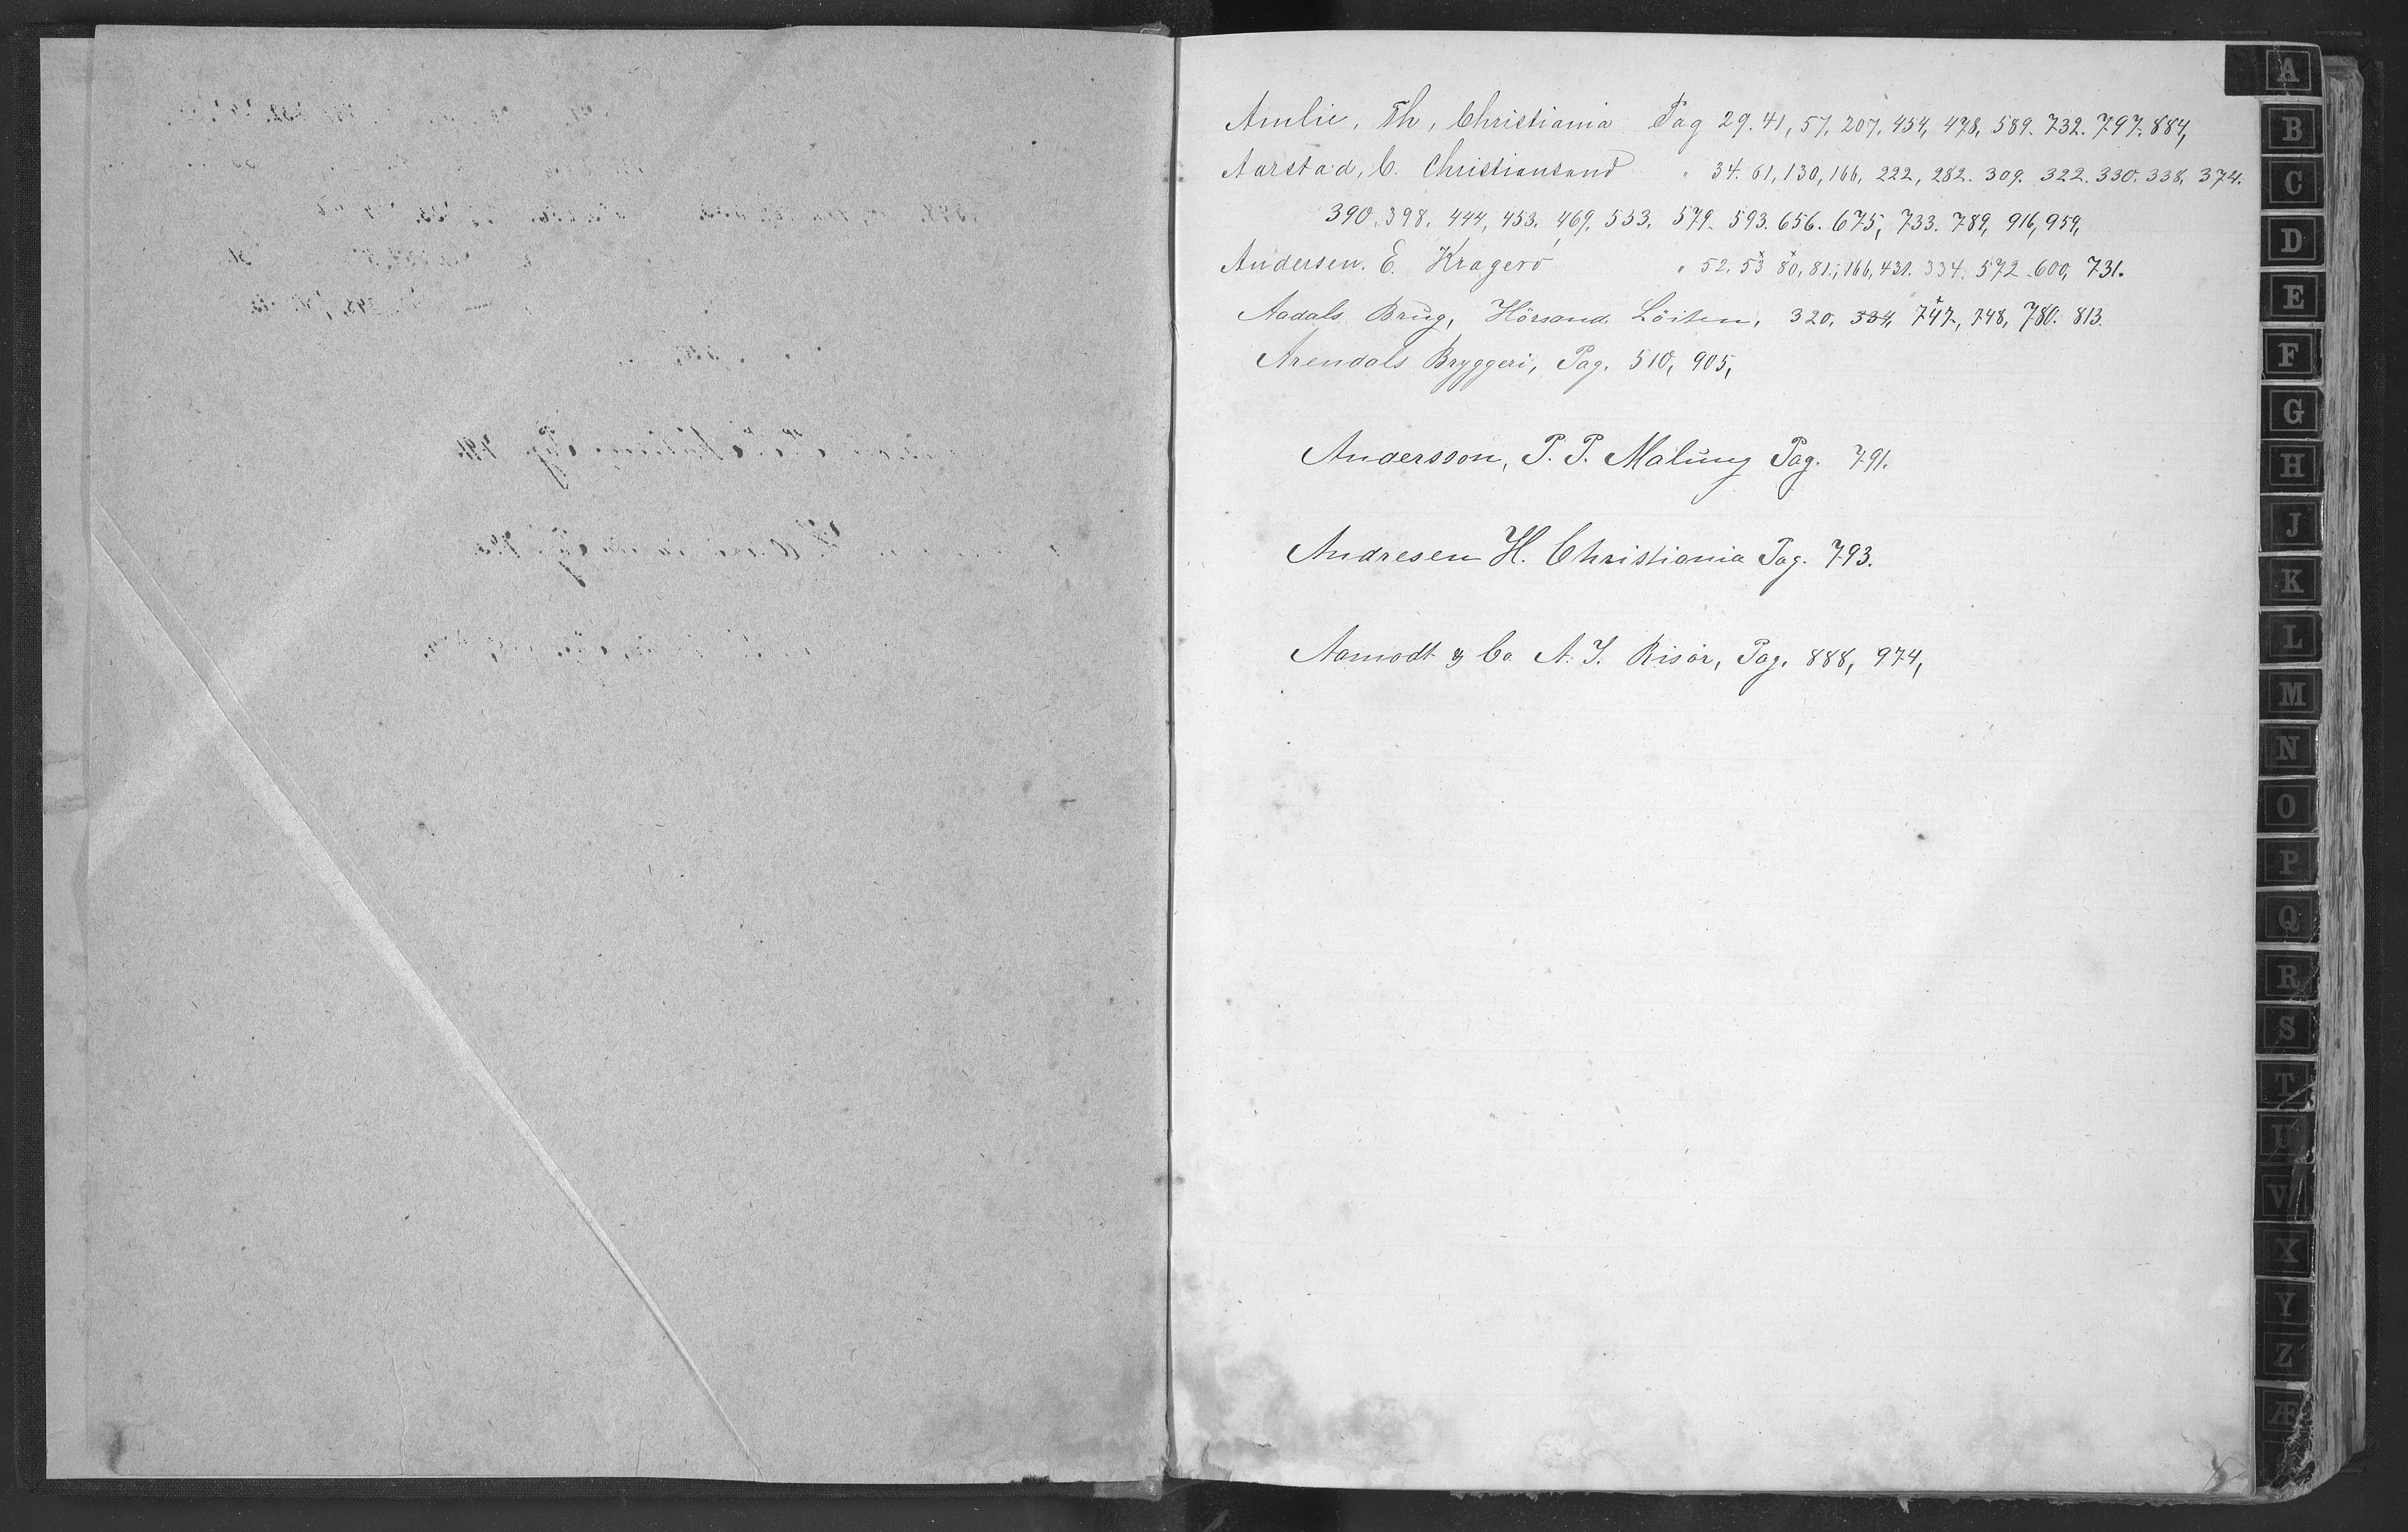 Amlie, Th, Christiania Pag 29. 41, 57, 207, 454, 478, 589. 732. 797. 884,
Aarstad, C. Christiansand " 34. 61, 130, 166, 222, 282. 309. 322. 330. 338, 374.
390. 398, 444, 453, 469, 533, 579. 593. 656. 675, 733. 789, 916, 959,
Andersen. E. Kragerö " 52. 53 80, 81, 166, 431. 334. 572 600, 731.
Aadals Brug, Hörsand Löiten, 320, 334, 747, 748, 780. 813.
Arendals Bryggeri, Pag. 510, 905,
Andersson, P. P. Malung Pag. 791.
Andresen H. Christiania Pag. 793.
Aamodt & Co A. J. Risör, Pag. 888, 974,
A
B
C
D
E
F
G
H
J
K
L
M
N
O
P
Q
R
S
T
U
V
X
Y
Z
Æ